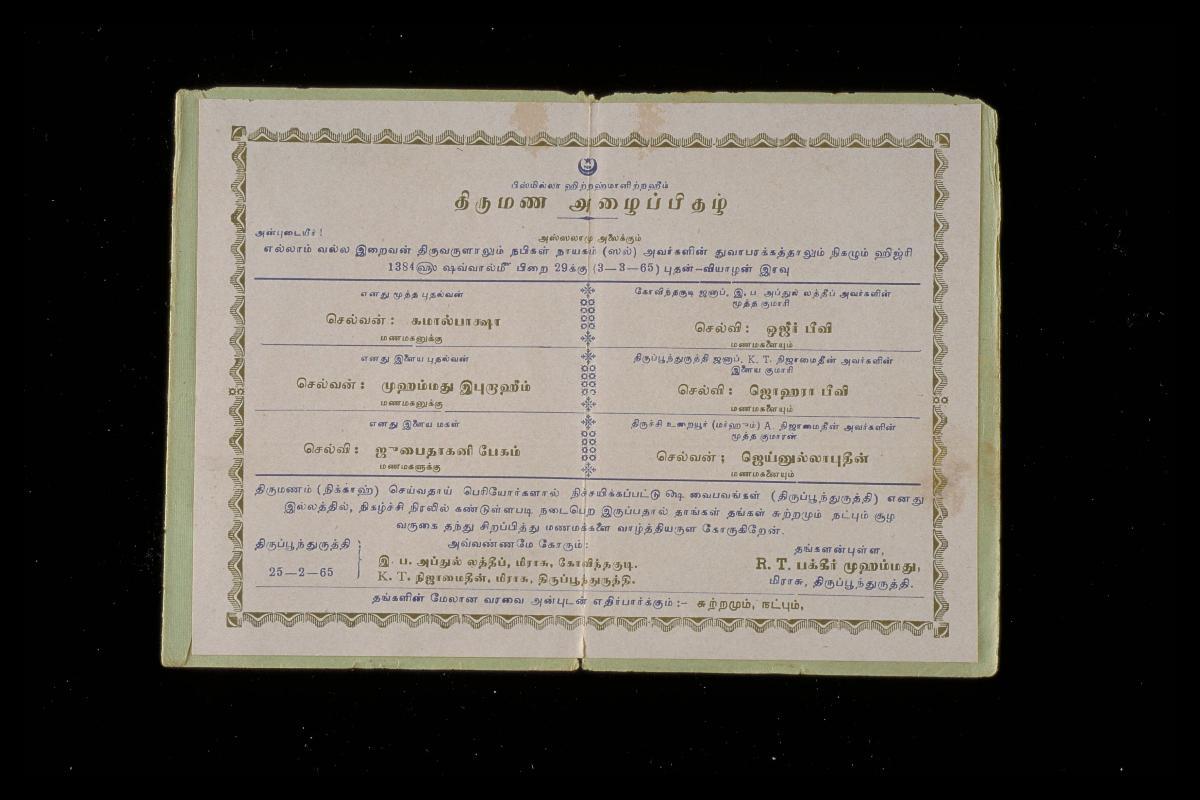 பிஸ்மில்லா ஹிற்றஹ்மானிற்றஹீம்
திருமண அழைப்பிதழ்
அன்புடையீர்!
அஸ்ஸலாமு அலைக்கும்
எல்லாம் வல்ல இறைவன் திருவருளாலும் நபிகள் நாயகம் (ஸல்) அவர்களின் துவாபரக்கத்தாலும் நிகழும் ஹிஜ்ரி
1384 ௵ ஷவ்வால்மீ் பிறை 29க்கு (3—3—65) புதன்-வியாழன் இரவு
எனது மூத்த புதல்வன்
செல்வன் : கமால்பாக்ஷா
மணமகனுக்கு
கோவிந்தகுடி ஜனாப். இ. ப. அப்துல் லத்தீப் அவர்களின்
மூத்த குமாரி
செல்வி : ஒஜீர் பீவி
மணமகளையும்
எனது இளைய புதல்வன்
செல்வன் : முஹம்மது இபுறாஹீம்
மணமகனுக்கு
திருப்பூந்துருத்தி ஜனாப். K. T. நிஜாமைதீன் அவர்களின்
இளைய குமாரி
செல்வி : ஜொஹரா பீவி
மணமகளையும்
எனது இளைய மகள்
செல்வி : ஜுபைதாகனி பேகம்
மணமகளுக்கு
திருச்சி உறையூர் (மர்ஹூம்) A. நிஜாமைதீன் அவர்களின்
மூத்த குமாரன்
செல்வன் ; ஜெய்னுல்லாபுதீன்
மணமகனையும்
திருமணம் (நிக்காஹ்) செய்வதாய் பெரியோர்களால் நிச்சயிக்கப்பட்டு ௸ வைபவங்கள் (திருப்பூந்துருத்தி) எனது
இல்லத்தில், நிகழ்ச்சி நிரலில் கண்டுள்ளபடி நடைபெற இருப்பதால் தாங்கள் தங்கள் சுற்றமும் நட்பும் சூழ
வருகை தந்து சிறப்பித்து மணமக்களை வாழ்த்தியருள கோருகிறேன்.
திருப்பூந்துருத்தி
25—2—65
அவ்வண்ணமே கோரும்:
இ. ப. அப்துல் லத்தீப், மிராசு, கோவிந்தகுடி.
K. T. நிஜாமைதீன், மிராசு, திருப்பூந்துருத்தி.
தங்களன்புள்ள,
R. T. பக்கீர் முஹம்மது,
மிராசு, திருப்பூந்துருத்தி.
தங்களின் மேலான வரவை அன்புடன் எதிர்பார்க்கும் :- சுற்றமும், நட்பும்,